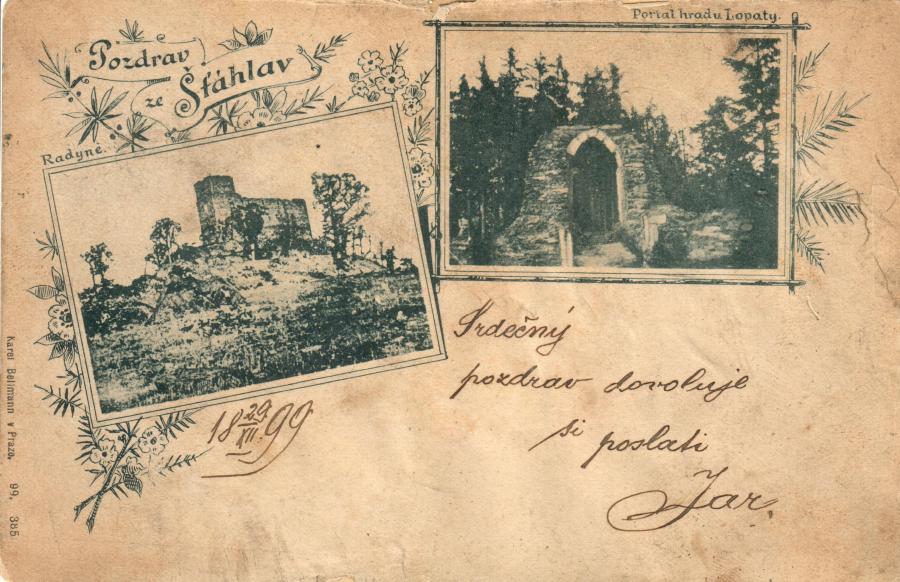 Pozdrav
ze Šťáhlav
Portal hradu Lopaty.
Radyně.
Srdečný
pozdrav dovoluje
si poslati
Jar.
18 29/XII. 99
Karel Bellmann v Praze, 99, 385